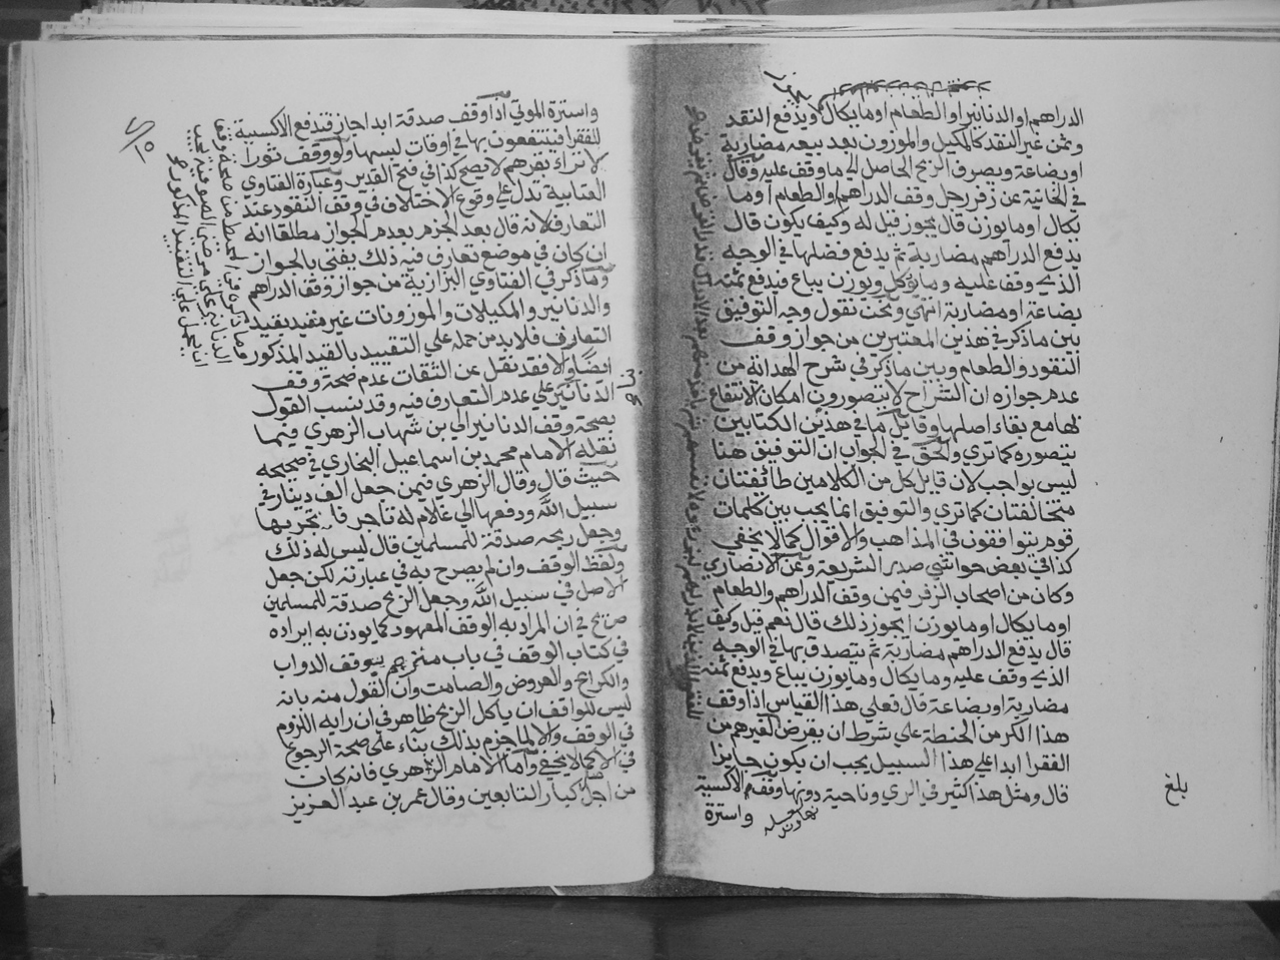 الدراهم او الدنانير او الطعام او ما يكال او يدفع النقد
وثمن غير النقد كالمكيل والموزون بعد بيعه مضاربة
او بضاعة ويصرف الربح الحاصل الي ما وقف عليه وقال
في الخانية عن زفر رجل وقف الدراهم والطعام او ما
يكال او ما يوزن قال يجوز قيل له وكيف يكون قال
يدفع الدراهم مضاربة ثم يدفع فضلها في الوجه
الذي وقف عليه وما يؤكل ويوزن يباع فيدفع ثمنه
بضاعة او مضاربة انتهي ونحن نقول وجه التوفيق
بين ما ذكر في هذين المعتبرين من جواز وقف
النقود والطعام وبين ما ذكر في شرح الهداية من
عدم جوازه ان الشراح لا يتصورون امكان الانتفاع
بها مع بقاء اصلها وقايل ما في هذين الكتابين
يتصوره كما تري والحق في الجواب ان التوفيق هنا
ليس بواجب لان قايل كل من الكلامين طائفتان
متخالفتان كما تري والتوفيق انما يجب بين كلمات
قوم يتوافقون في المذاهب والاقوال كما لا يخفي
كذا في بعض حواشي صدر الشريعة وعن الانصاري
وكان من اصحاب الزفر فيمن وقف الدراهم والطعام
او ما يكال او ما يوزن ايجوز ذلك قال نعم قيل وكيف
قال يدفع الدراهم مضاربة ثم يتصدق بها في الوجه
الذي وقف عليه وما يكال وما يوزن يباع ويدفع ثمنه
مضاربة او بضاعة قال فعلي هذا القياس اذا وقف
هذا الكر من الحنطة علي شرط ان يقرض لفقيرهم من
الفقرا ابدا علي هذا السبيل يجب ان يكون جايزا
قال ومثل هذا كثير في الري وناحية دونها وقف الاكسية
نهاوند
واسترة
بلغ
واسترة الموتي اذا وقف صدقة ابدا جاز فتدفع الاكسية
للفقرا فينتفعون بها في اوقات لبسها ولو وقف ثورا
لانزاء بقرهم لا يصح كذا في فتح القدير وعبارة الفتاوي
العتابية تدل علي وقوع الاختلاف في وقف النقود عند
التعارف لانه قال بعد الجزم بعدم الجواز مطلقا انه
ان كان في موضع تعارف فيه ذلك يفتي بالجواز
وما ذكر في الفتاوي البزازية من جواز وقف الدراهم
والدنانير والمكيلات والموزونات غير مقيد بقيد
التعارف فلا بد من حمله علي التقييد بالقيد المذكور
ايضا والا فقد نقل عن الثقات عدم صحة وقف
الدنانير علي عدم التعارف فيه وقد ينسب القول
بصحة وقف الدنانير الي بن شهاب الزهري فيما
نقله الامام محمد بن اسماعيل البخاري في صحيحه
حيث قال وقال الزهري فيمن جعل الف دينار في
سبيل الله ودفعها الي غلام له تاجر يتجر بها
وجعل ربحه صدقة للمسلمين قال ليس له ذلك
ولفظ الوقف وان لم يصرح به في عبارته لكن جعل
الاصل في سبيل الله وجعل الربح صدقة للمسلمين
صريح في ان المراد به الوقف المعهود كما يوذن به ايراده
في كتاب الوقف في باب مترجم بوقف الدواب
والكراع والعروض والصامت وان القول منه بانه
ليس للواقف ان ياكل الربح ظاهر في ان رايه اللزوم
في الوقف والا لما جزم بذلك بناء علي صحة الرجوع
في الاكل كما لا يخفي واما الامام الزهري فانه كان
من اجل كبار التابعين وقال عمر بن عبد العزيز